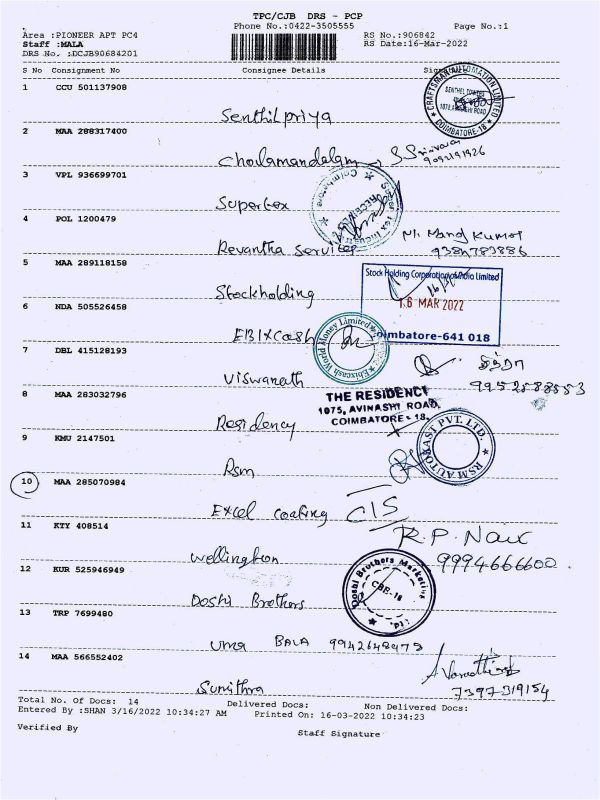 TPC/CJB DRS - PCP
Phone No.:0422-3505555
Page No.:1
Area :PIONEER APT PC4
RS No.:906842
Staff :MALA
RS Date:16-Mar-2022
DRS No. :DCJB90684201
S No Consignment No Consignee Details Sign
1 CCU 501137908
Senthil priya
CRAFTSMAN AUTOMATION LIMITED
SENTHEL TOWERS
1078, AVINASHI ROAD
COIMBATORE-18
2 MAA 288317400
Cholamandalam
9092191926
3 VPL 936699701
Supertex
RECEIVED
Coimbatore
4 POL 1200479
Revantha Services
M. Manoj Kumar
9384783886
5 MAA 289118158
Stockholding
Stock Holding Corporation of India Limited
16 MAR 2022
Coimbatore-641 018
6 NDA 505526458
EBIXCash
Ebixcash World Money Limited
7 DBL 415128193
Viswanath
சித்ரா
9952588553
8 MAA 283032796
Residency
THE RESIDENCY
1075, AVINASHI ROAD,
COIMBATORE - 18.
9 KMU 2147501
Rsm
RSM AUTOKAST PVT. LTD.
10 MAA 285070984
Excel coating
CIS
11 KTY 408514
Wellington
R.P. Nair
9994666600.
12 KUR 525946949
Doshi Brothers
Doshi Brothers Marketing
CBE-18
13 TRP 7699480
Uma BALA 9942648475
14 MAA 566552402
Sunithra
7397319154
Total No. Of Docs: 14 Delivered Docs: Non Delivered Docs:
Entered By :SHAN 3/16/2022 10:34:27 AM Printed On: 16-03-2022 10:34:23
Verified By
Staff Signature